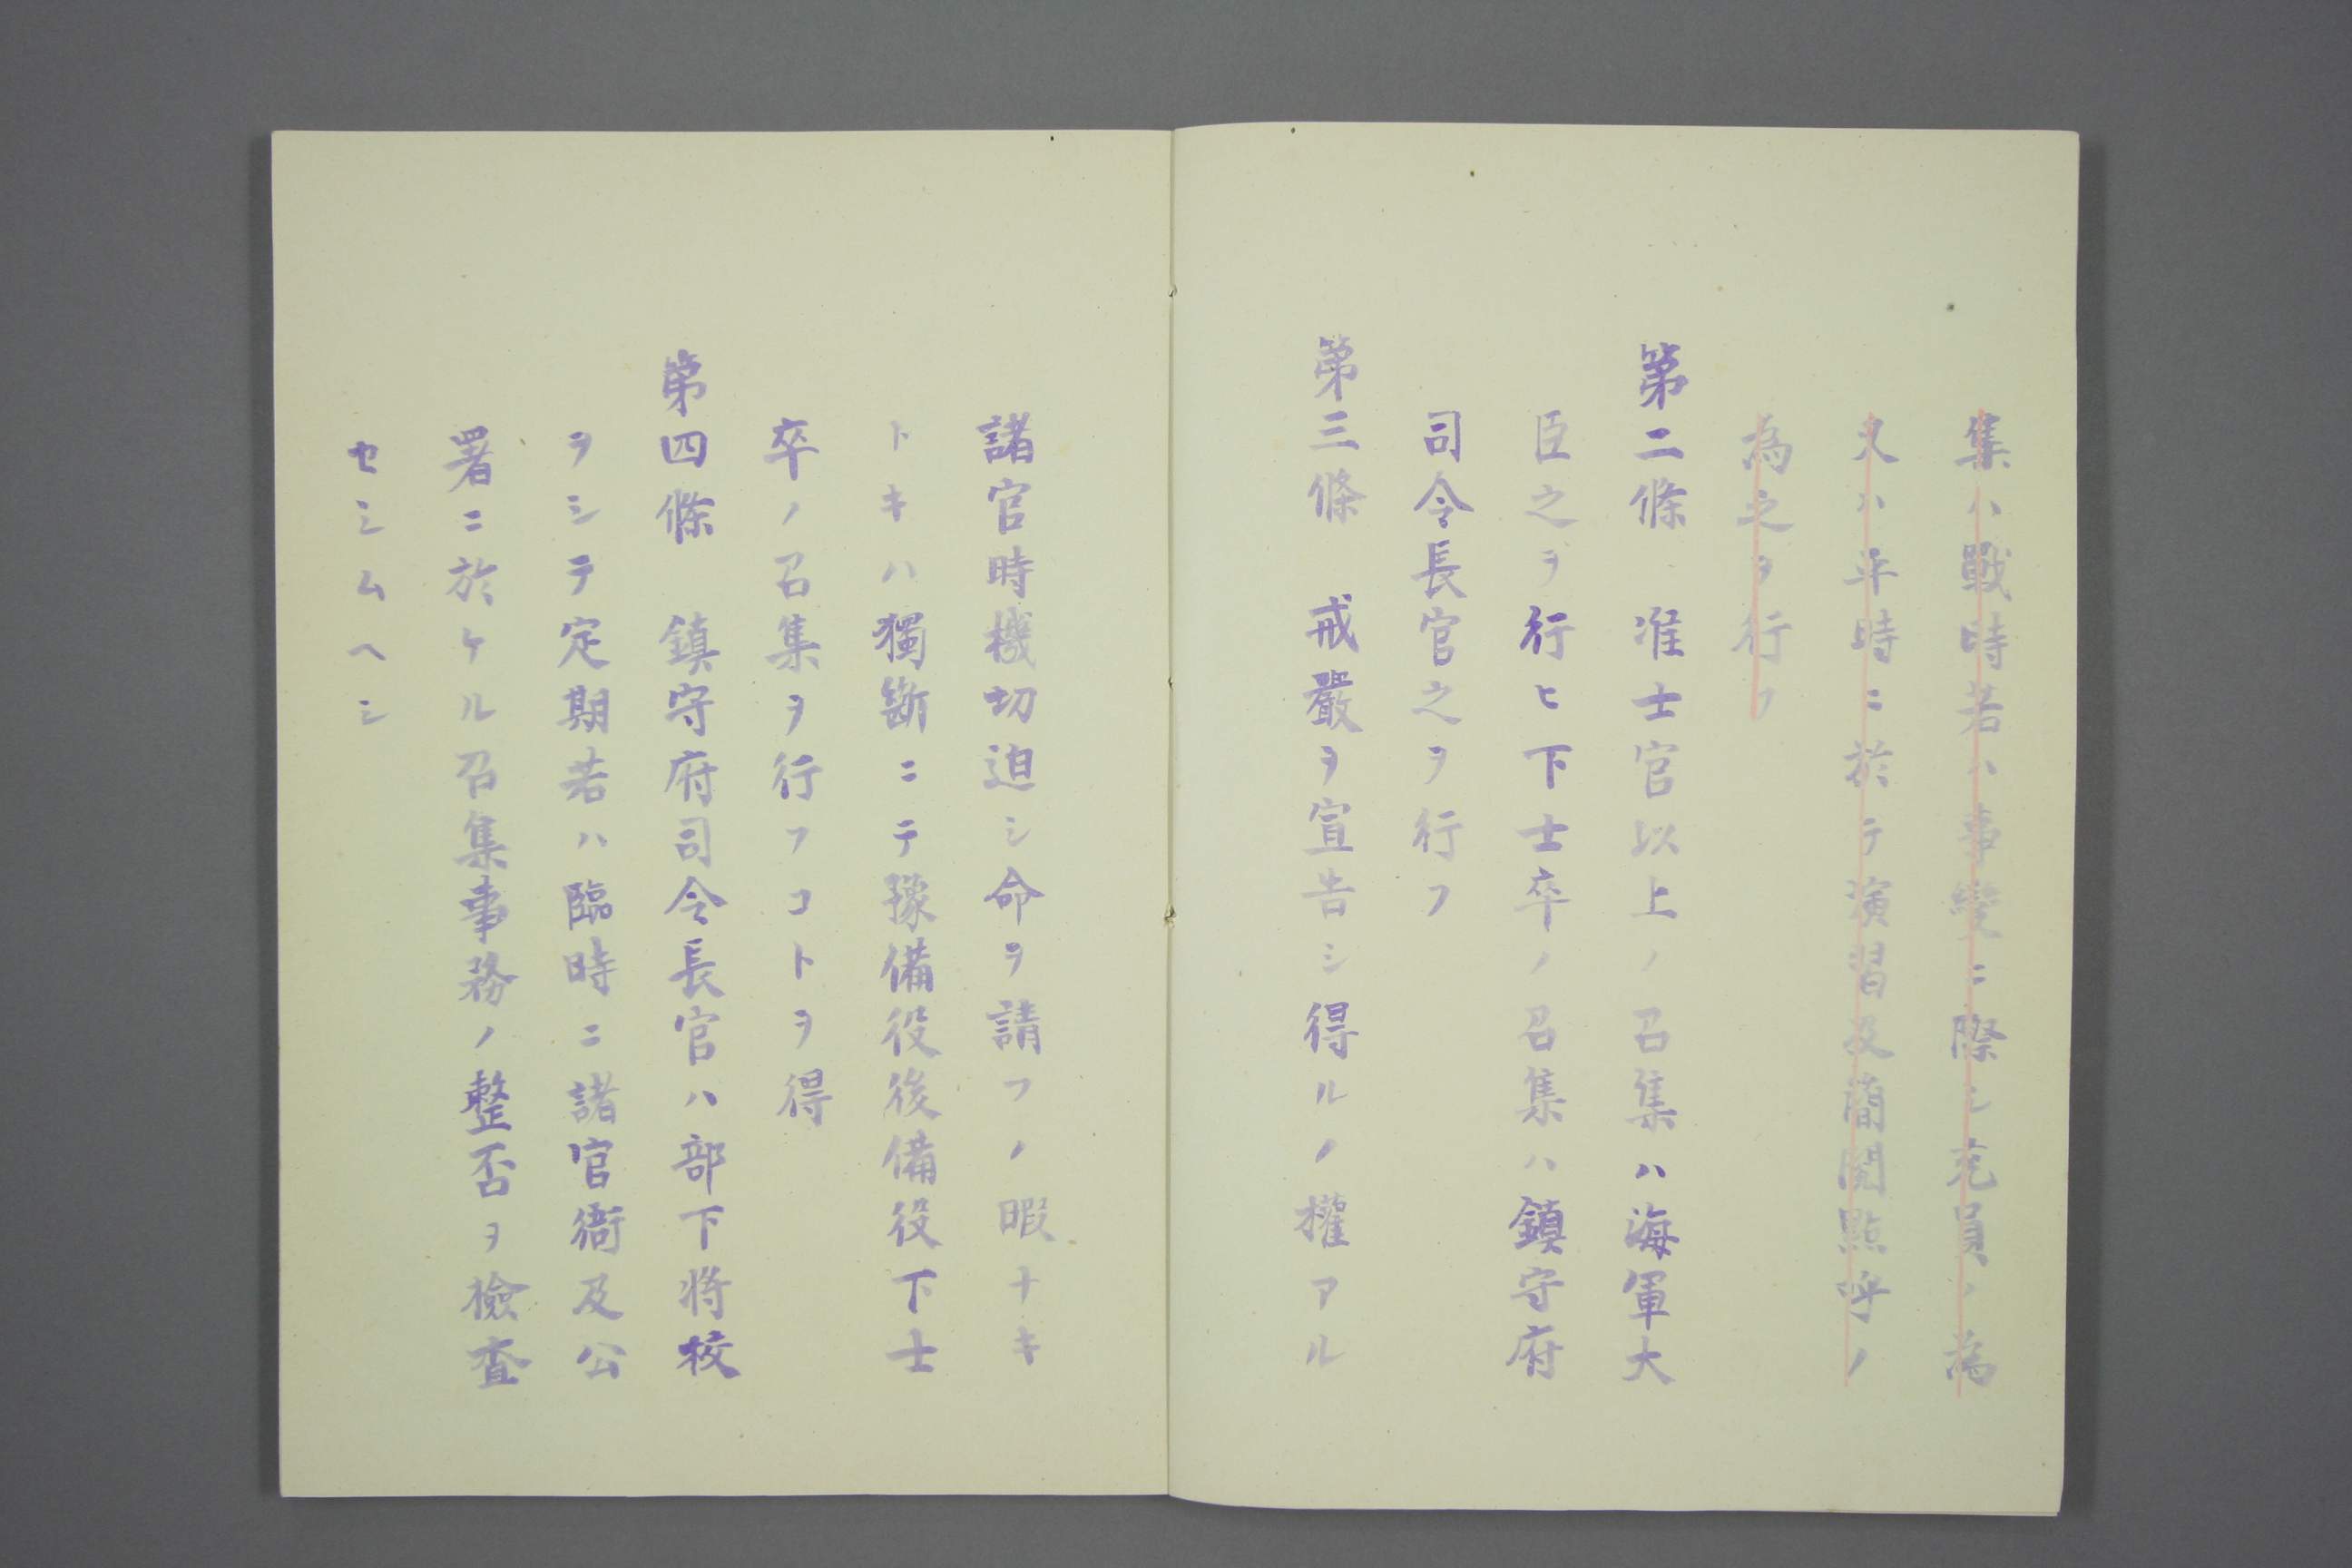 集ハ戰時若ハ事變ニ際シ充員ノ為
又ハ平時ニ於テ演習及簡閲點呼ノ
為之ヲ行フ
第二條　准士官以上ノ召集ハ海軍大
臣之ヲ行ヒ下士卒ノ召集ハ鎮守府
司令長官之ヲ行フ
第三條　戒嚴ヲ宣告シ得ルノ權アル
諸官時機切迫シ命ヲ請フノ暇ナキ
トキハ獨斷ニテ豫備役後備役下士
卒ノ召集ヲ行フコトヲ得
第四條　鎮守府司令長官ハ部下将校
ヲシテ定期若ハ臨時ニ諸官衙及公
署ニ於ケル召集事務ノ整否ヲ檢査
セシムヘシ